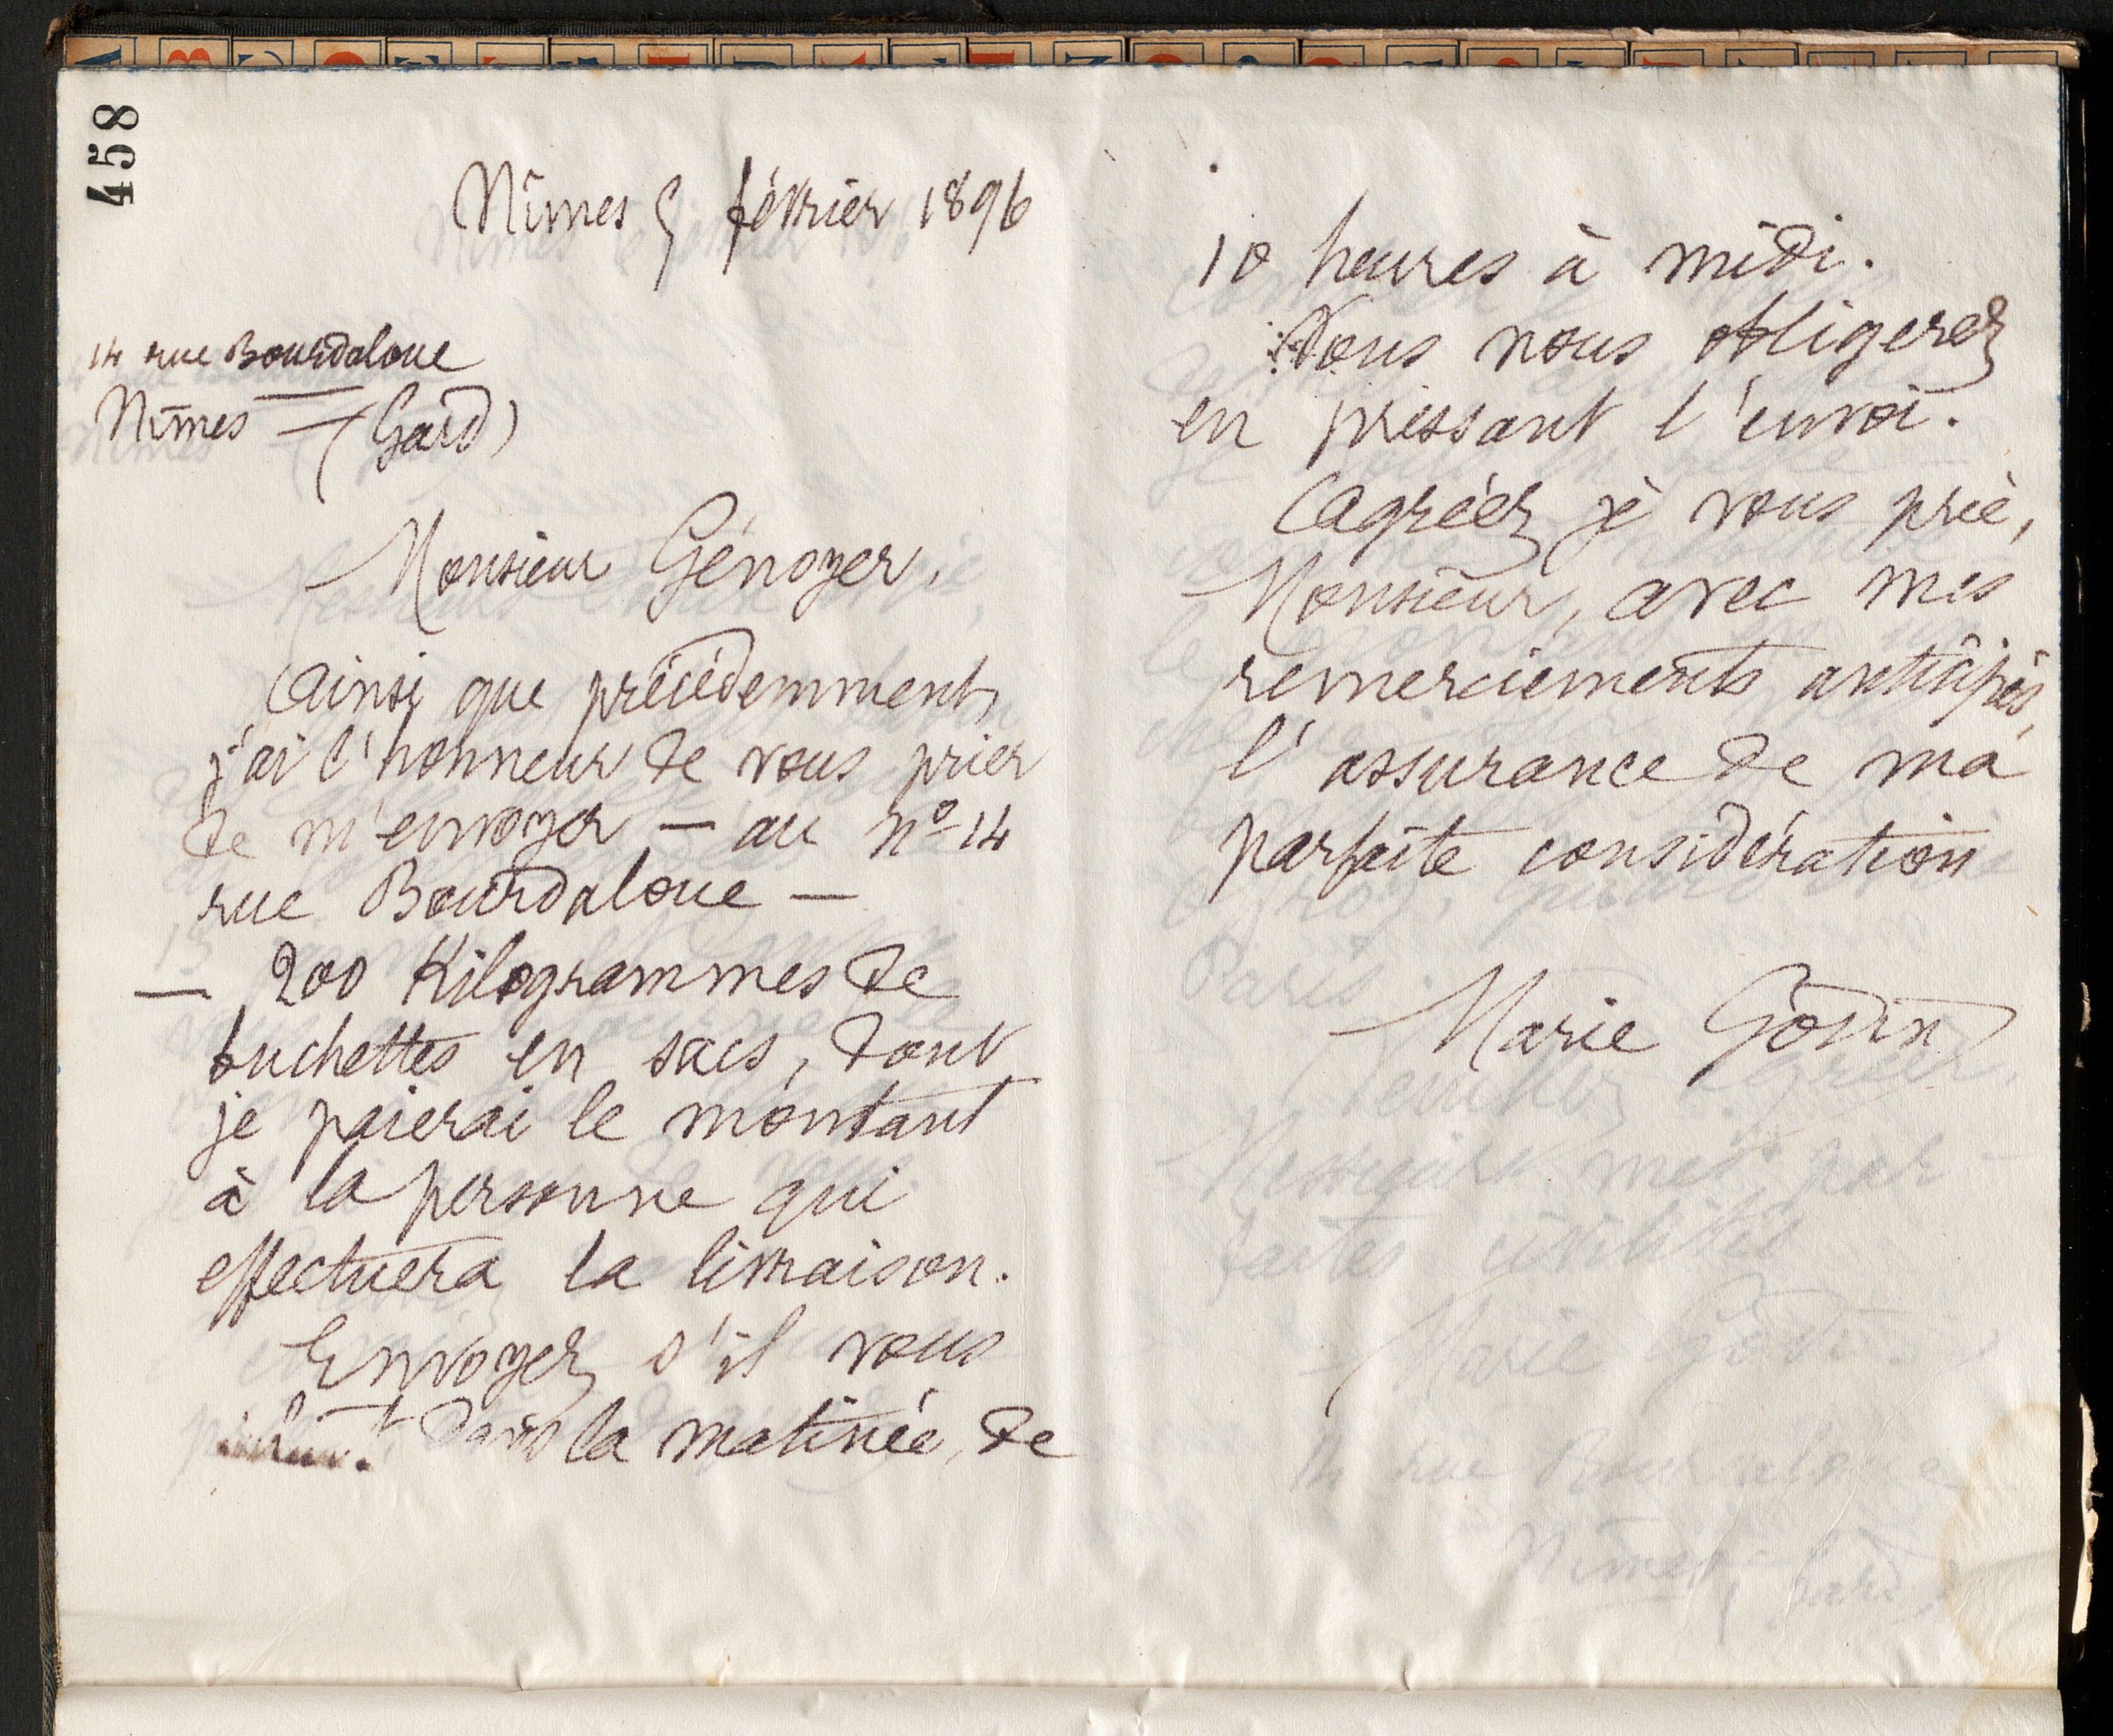 458
Nîmes 5 février 1896
14 rue Bourdaloue
Nîmes — (Gard)
Monsieur Génoyer,
Ainsi que précédemment,
j'ai l'honneur de vous prier
de m'envoyer — au nº 14
rue Bourdaloue —
— 200 Kilogrammes de
buchettes en sacs, dont
je paierai le montant
à la personne qui
effectuera la livraison.
Envoyez s'il vous
dans la matinée, de
10 heures à midi.
Vous nous obligerez
en pressant l'envoi.
Agréez je vous prie,
Monsieur, avec mes
remerciements anticipés,
l'assurance de ma
parfaite considération
Marie Godin